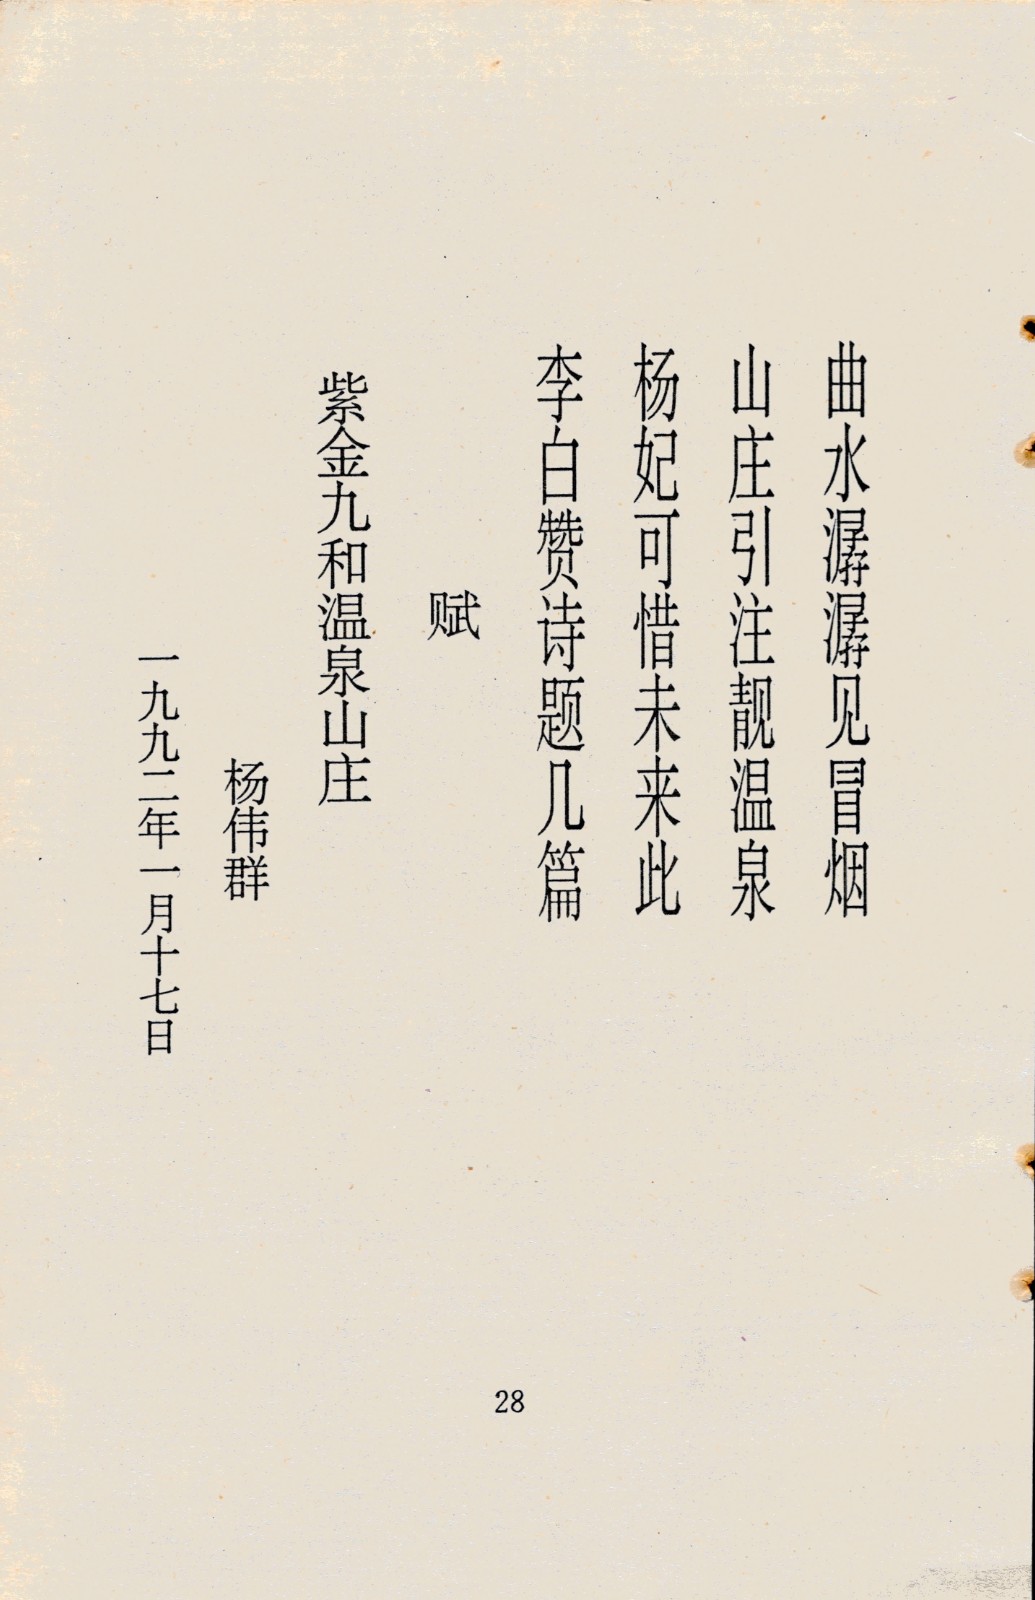 曲水潺潺见冒烟
山庄引注靓温泉
杨妃可惜未来此
李白赞诗题几篇
赋
紫金九和温泉山庄
杨伟群
一九九二年一月十七日
28